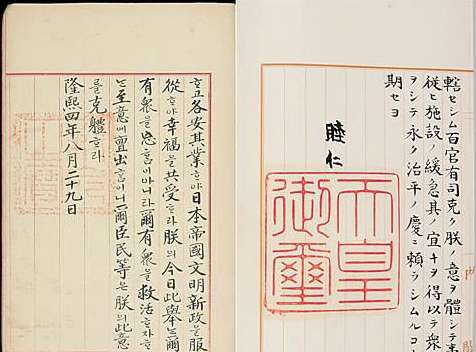 轄セシム百官有司克ク朕ノ意ヲ體シテ事
從ヒ施設緩急其ノ宜キヲ得以テ衆
ヲシテ永ク治平ノ慶ニ賴ラシムルコト
期セヨ
睦仁
天皇
御璽
ᄒᆞ고各安其業ᄒᆞ야日本帝國文明新政을服
從ᄒᆞ야幸福을共受ᄒᆞ라朕의今日此擧ᄂᆞᆫ爾
有衆을忘홈이아니라爾有衆을救活ᄒᆞ자ᄒᆞ
ᄂᆞᆫ至意에亶出홈이니爾臣民等은朕의此意
를克體ᄒᆞ라
隆熙四年八月二十九日